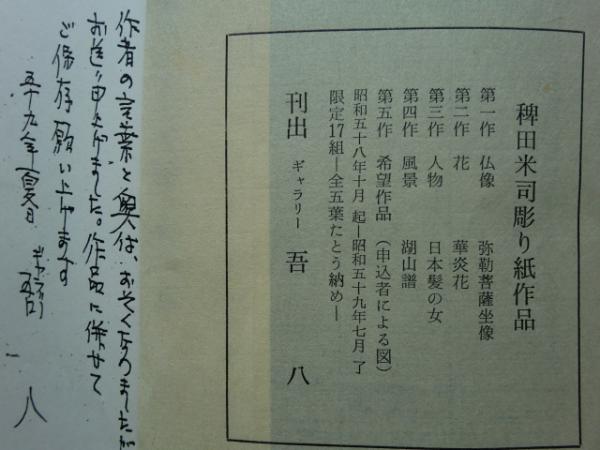 稗田米司彫り紙作品
第一作 仏像 弥勒菩薩坐像
第二作 花 華炎花
第三作 人物 日本髪の女
第四作 風景 湖山譜
第五作 希望作品(申込者による図)
昭和五十八年十月 起―昭和五十九年七月 了
限定17組―全五葉たとう納め―
刊出 ギャラリー 吾八
作者の言葉と奥は、おそくなりましたが
お送り申上げました。作品に併せて
ご保存願い上げます
五十九年夏日
ギャラリー 吾八